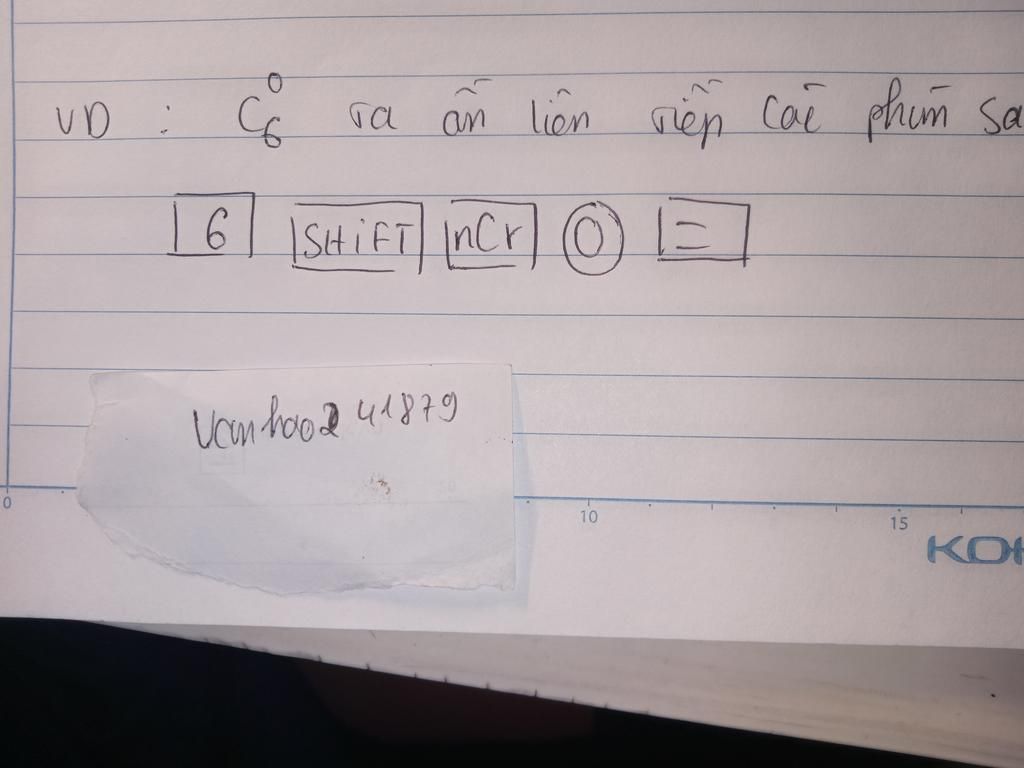 VD : C₆⁰ ta ấn liên tiếp các phím sa
6 SHiFT nCr 0 =
Vanhao241879
0 10 15
KOK